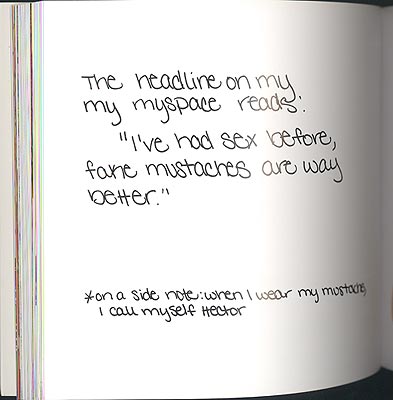 The headline on my
my myspace reads:
"I've had sex before,
fake mustaches are way
better."
*on a side note: when I wear my mustache,
I call myself Hector